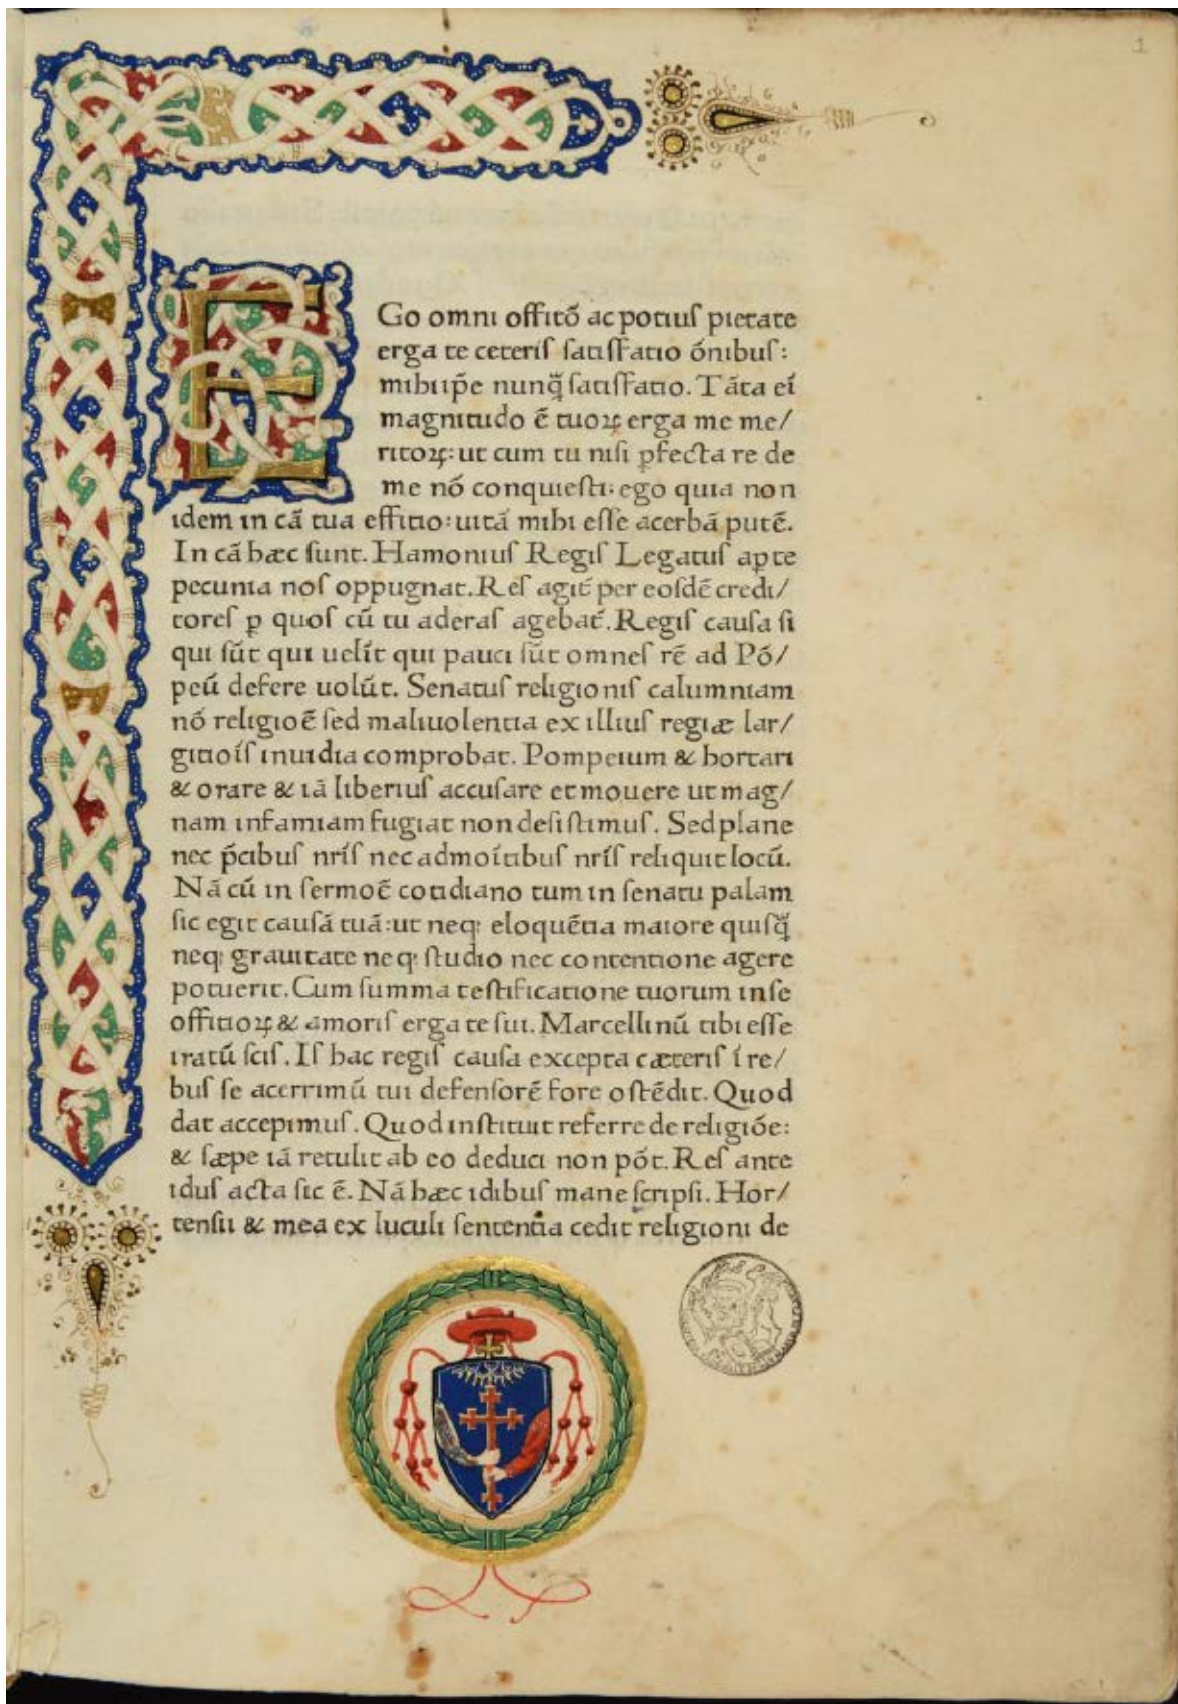 1
EGo omni offitō ac potius pietate
erga te ceteris ſatiſfatio ōnibus:
mihi ip̄e nunq̄ ſatiſfatio. Tāta ei᷒
magnitudo ē tuoꝝ erga me me/
ritoꝝ: ut cum tu niſi ꝑfecta re de
me nō conquieſti: ego quia non
idem in cā tua effitio: uitā mihi eſſe acerbā putē.
In cā hæc ſunt. Hamonius Regiſ Legatuſ aꝑte
pecunia noſ oppugnat. Reſ agit᷒ per eoſdē credi/
toreſ ꝑ quoſ cū tu aderaſ agebat᷒. Regiſ cauſa ſi
qui ſūt qui uelīt qui pauci ſūt omneſ rē ad Pō/
peū defere uolūt. Senatuſ religioniſ calumniam
nō religioē ſed maliuolentia ex illiuſ regiæ lar/
gitioīſ inuidia comprobat. Pompeium & hortari
& orare & iā liberiuſ accuſare et mouere ut mag/
nam infamiam fugiat non deſiſtimuſ. Sed plane
nec p̄cibuſ nr̄iſ nec admoītibuſ nr̄iſ reliquit locū.
Nā cū in ſermoē cotidiano tum in ſenatu palam
ſic egit cauſā tuā: ut neqꝫ eloquētia maiore quiſq̄
neqꝫ grauitate neqꝫ ſtudio nec contentione agere
potuerit. Cum ſumma teſtificatione tuorum in ſe
offitioꝝ & amoriſ erga te ſui. Marcellinū tibi eſſe
iratū ſciſ. Iſ hac regiſ cauſa excepta cæteriſ ī re/
buſ ſe acerrimū tui defenſorē fore oſtēdit. Quod
dat accepimuſ. Quod inſtituit referre de religiōe:
& ſæpe iā retulit ab eo deduci non pōt. Reſ ante
iduſ acta ſic ē. Nā hæc idibuſ mane ſcripſi. Hor/
tenſii & mea ex luculi ſententia cedit religioni de